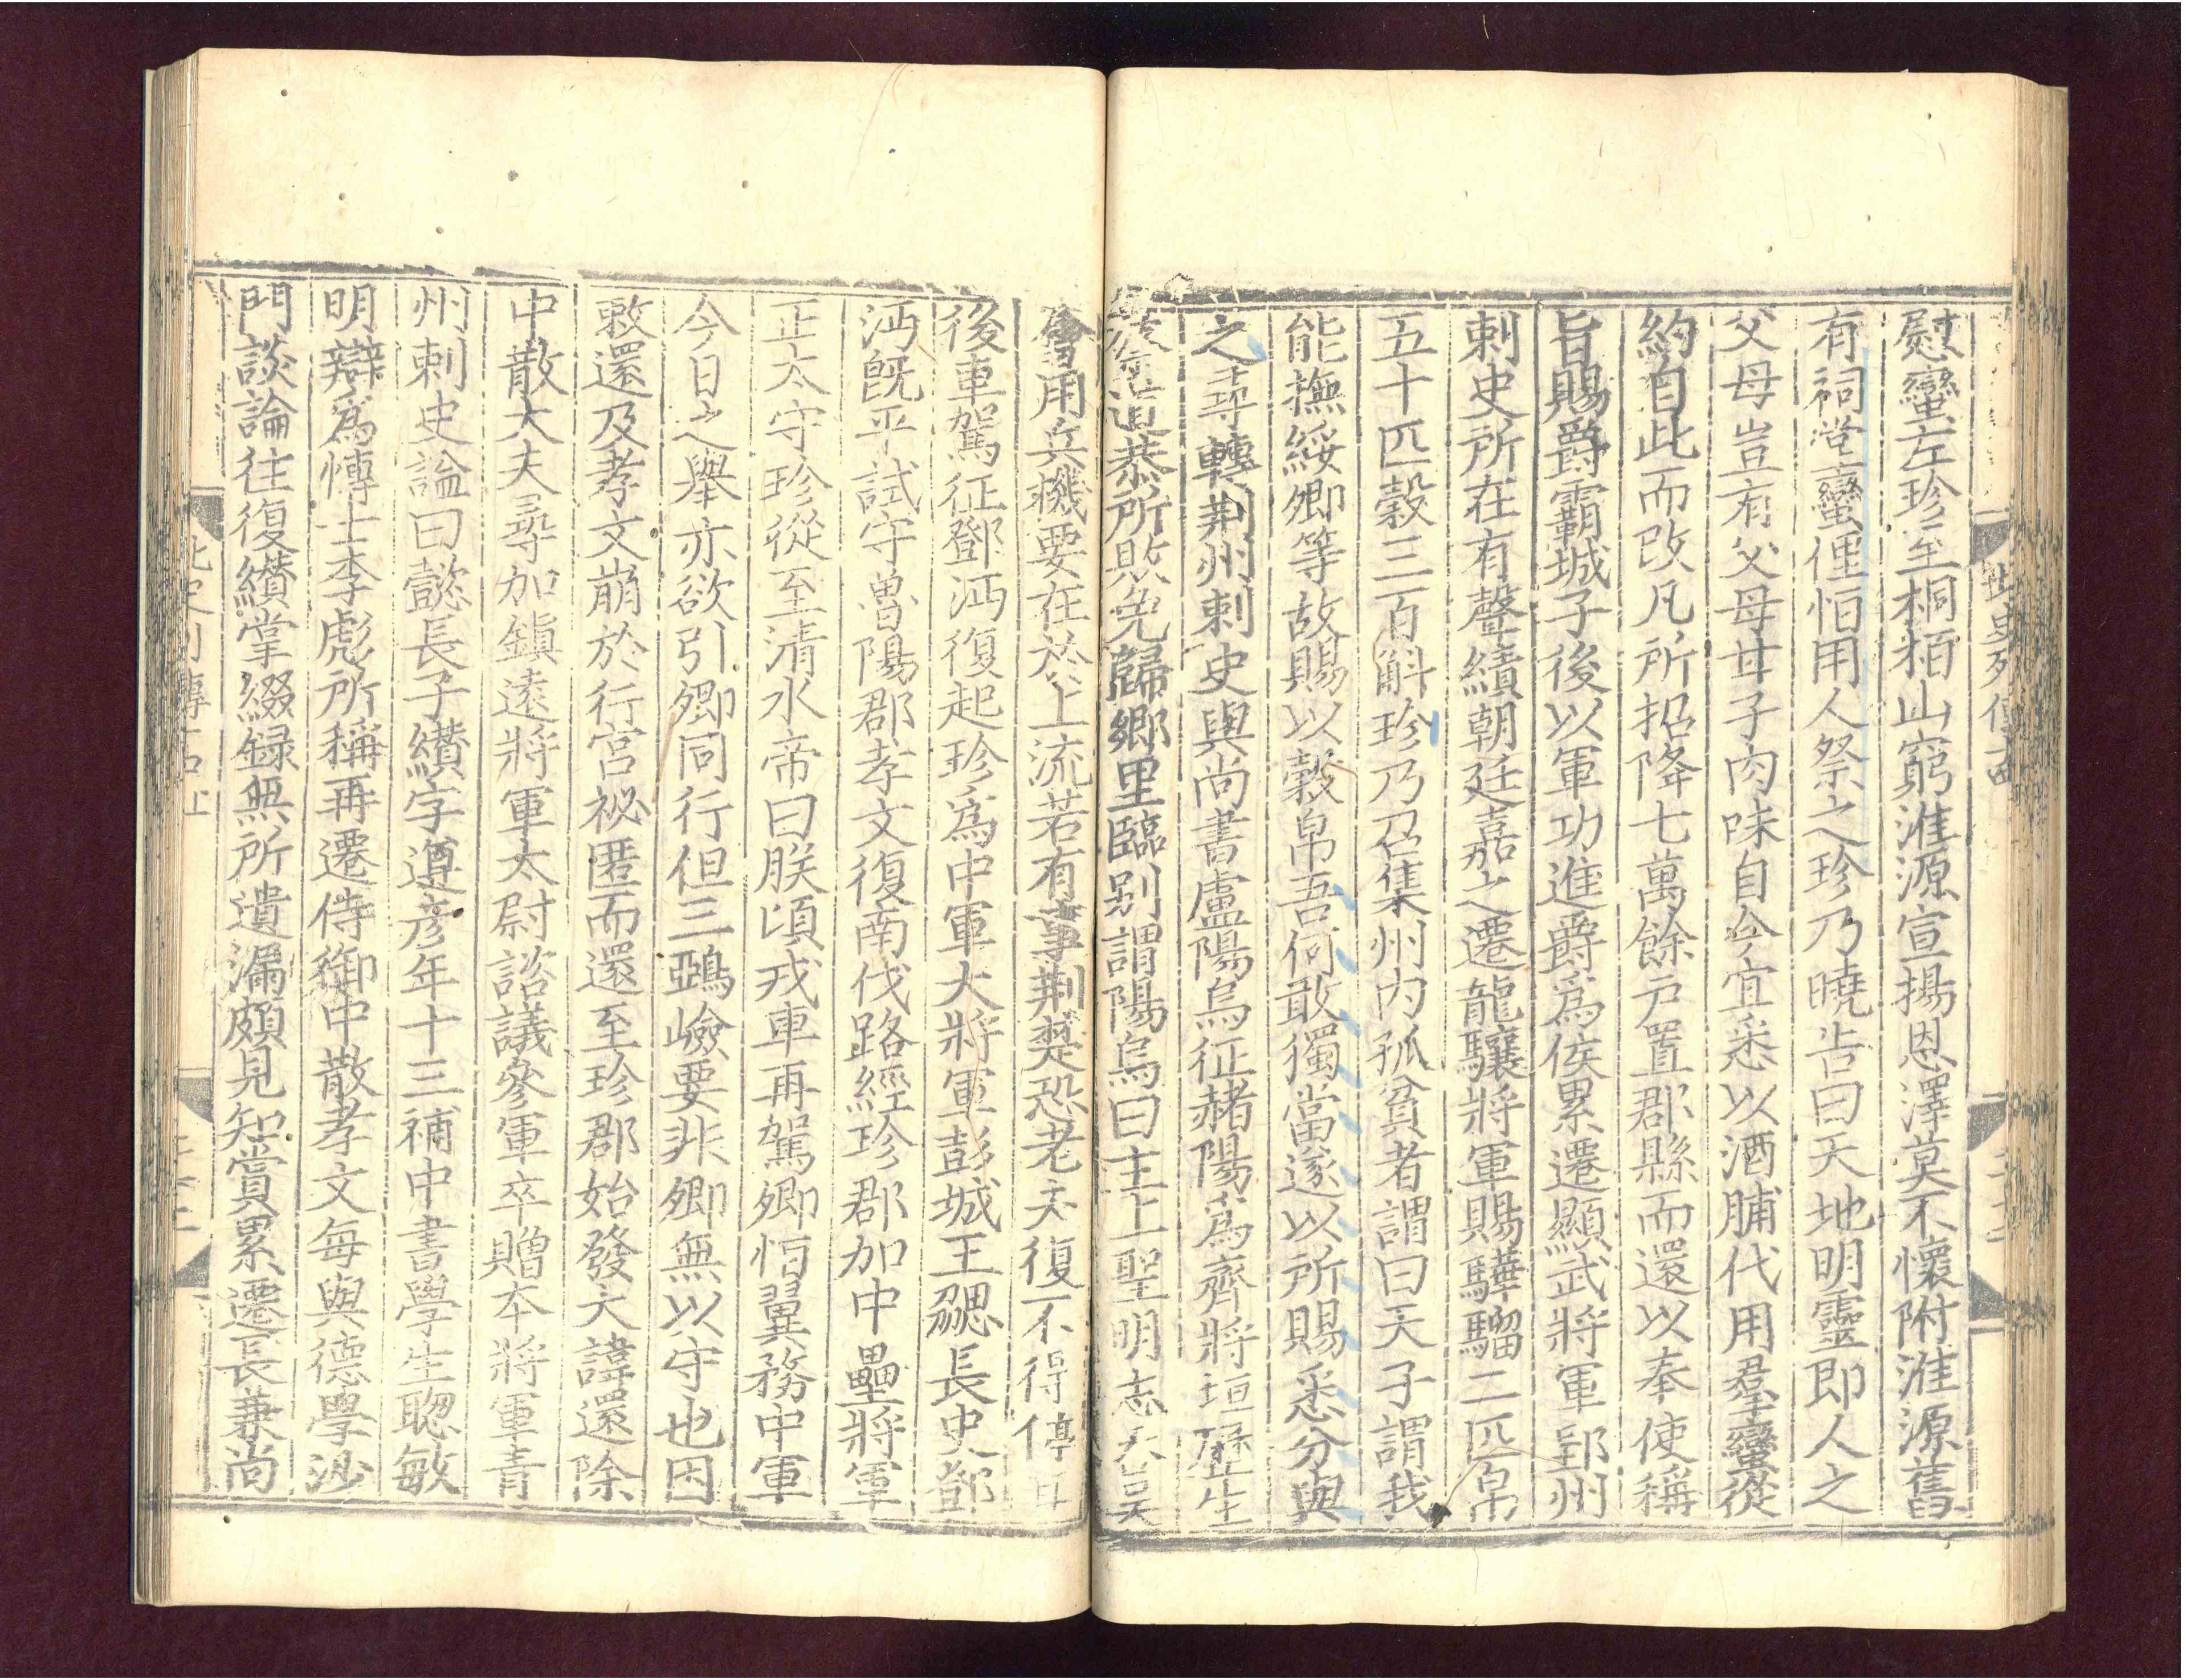 慰蠻左珍至桐栢山窮淮源宣揚恩澤莫不懷附淮源舊
有祠堂蠻俚恒用人祭之珍乃曉告曰天地明靈即人之
父母豈有父母甘子肉味自今宜悉以酒脯代用羣蠻從
約自此而改凡所招降七萬餘戶置郡縣而還以奉使稱
旨賜爵霸城子後以軍功進爵爲侯累遷顯武將軍郢州
刺史所在有聲績朝廷嘉之遷龍驤將軍賜驊騮二匹帛
五十匹穀三百斛珍乃召集州內孤貧者謂曰天子謂我
能撫綏卿等故賜以穀帛吾何敢獨當遂以所賜悉分與
之尋轉荆州刺史與尚書盧陽烏征赭陽爲齊將垣歷生
蔡道恭所敗免歸鄉里臨别謂陽烏曰主上聖明志吞吳
會用兵機要在於上流若有事荆楚恐老夫復不得停耳
後車駕征鄧沔復起珍爲中軍大將軍彭城王勰長史鄧
沔旣平試守魯陽郡孝文復南伐路經珍郡加中壘將軍
正太守珍從至清水帝曰朕頃戎車再駕卿恒翼務中軍
今日之舉亦欲引卿同行但三鵶嶮要非卿無以守也因
敕還及孝文崩於行宮祕匿而還至珍郡始發大諱還除
中散大夫尋加鎮遠將軍太尉諮議參軍卒贈本將軍青
州刺史謚曰懿長子纘字遵彦年十三補中書學生聦敏
明辯爲愽士李彪所稱再遷侍御中散孝文每與德學沙
門談論往復纘掌綴録無所遺漏頗見知賞累遷長兼尚
北史列傳